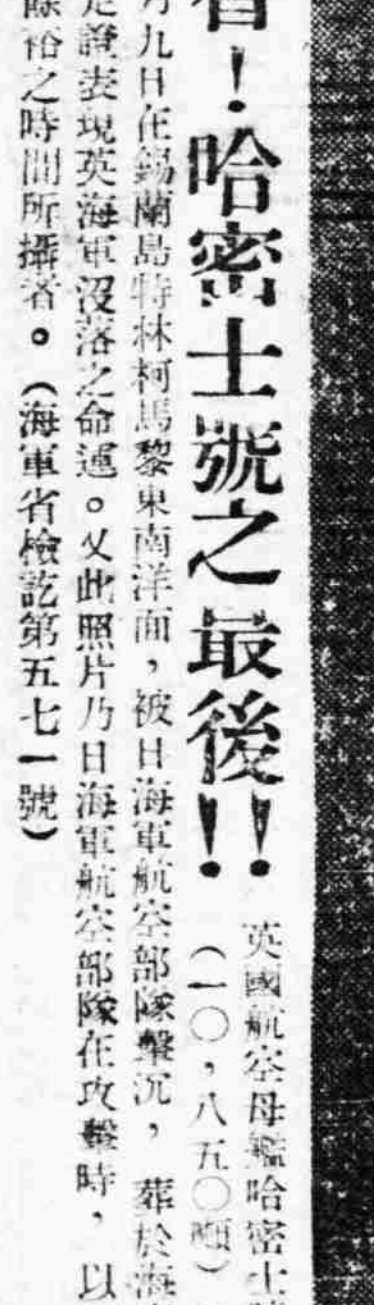 ！哈密士號之最後!!
英國航空母艦哈密士
（一〇，八五〇噸）
月九日在錫蘭島特林柯馬黎東南洋面，被日海軍航空部隊擊沉，葬於海
證表現英海軍沒落之命運。又此照片乃日海軍航空部隊在攻擊時，以
餘裕之時間所攝者。（海軍省檢訖第五七一號）